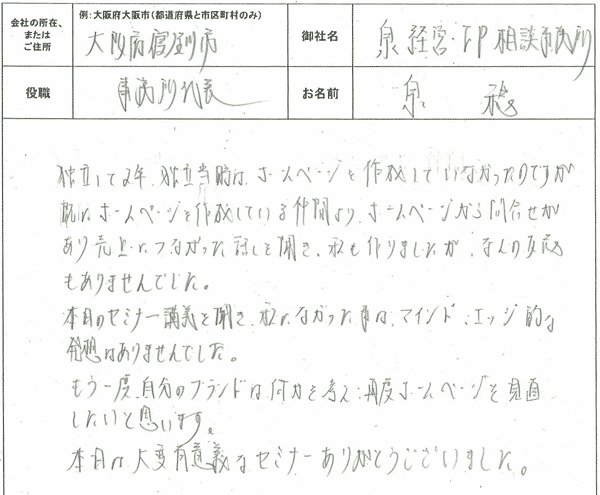 会社の所在、
または
ご住所
例：大阪府大阪市（都道府県と市区町村のみ）
大阪府寝屋川市
御社名
泉経営・FP相談事務所
役職
事務所代表
お名前
泉 聡
独立して2年、独立当時は、ホームページを作成していなかったのですが
既にホームページを作成している仲間より、ホームページから問合せが
あり売上につながった話しを聞き、私も作りましたが、なんの反応
もありませんでした。
本日のセミナー講義を聞き、私になかった事は、マインド、エッジ的な
発想はありませんでした。
もう一度、自分のブランドは何かを考え、再度ホームページを見直
したいと思います。
本日は大変有意義なセミナーありがとうございました。